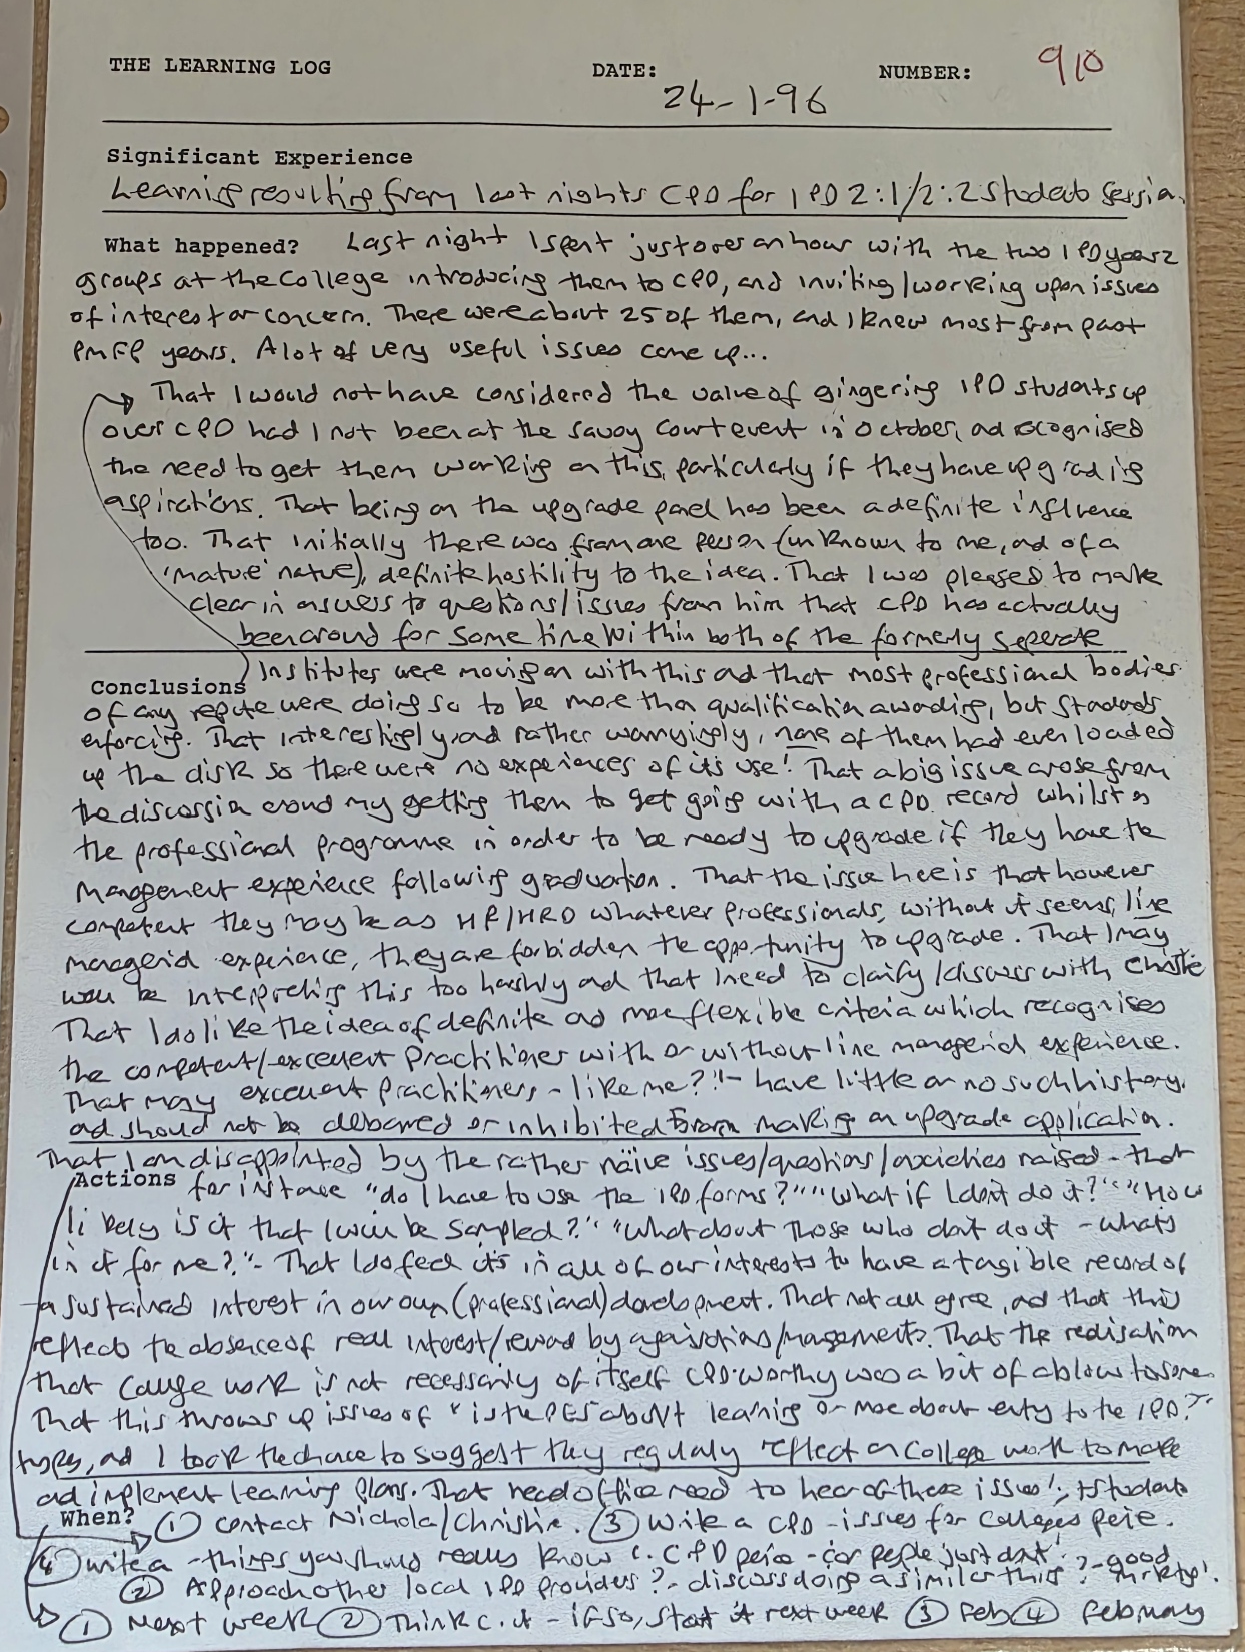 THE LEARNING LOG DATE: NUMBER: 910
24-1-96
Significant Experience
Learning resulting from last nights CPD for IPD 2:1/2:2 students session.
What happened? Last night I spent just over an hour with the two IPD year 2
groups at the College introducing them to CPD, and inviting/working upon issues
of interest or concern. There were about 25 of them, and I knew most from past
PMFP years. A lot of very useful issues came up...
That I would not have considered the value of gingering IPD students up
over CPD had I not been at the Savoy Court event in October, ad recognised
the need to get them working on this, particularly if they have upgrading
aspirations. That being on the upgrade panel has been a definite influence
too. That initially there was from one person (unknown to me, ad of a
'mature' nature), definite hostility to the idea. That I was pleased to make
clear in answers to questions/issues from him that CPD has actually
been around for some time within both of the formerly seperate
Institutes were moving on with this ad that most professional bodies
Conclusions
of any repute were doing so to be more than qualification awarding, but standards
enforcing. That interestingly, and rather worryingly, none of them had even loaded
up the disk so there were no experiences of its use! That a big issue arose from
the discussion around my getting them to get going with a CPD record whilst on
the professional programme in order to be ready to upgrade if they have the
management experience following graduation. That the issue here is that however
competent they may be as HR/HRD whatever professionals, without it seems, line
managerial experience, they are forbidden the opportunity to upgrade. That I may
well be interpreting this too harshly ad that I need to clarify/discuss with Christie
That I do like the idea of definite ad more flexible criteria which recognises
the competent/excellent practitioner with or without line managerial experience.
That may excellent practitioners - like me?!! - have little or no such history,
ad should not be debarred or inhibited from making an upgrade application.
That I am disappointed by the rather naïve issues/questions/anxieties raised - that
Actions for instance "do I have to use the IPD forms?" "What if I don't do it?" "How
likely is it that I will be sampled?" "What about those who don't do it - whats
in it for me?" - That I do feel it's in all of our interests to have a tangible record of
a sustained interest in our own (professional) development. That not all agree, ad that this
reflects the absence of real interest/reward by organisations/managements. That the realisation
that College work is not necessarily of itself CPD-worthy was a bit of a blow to some.
That this throws up issues of "is the PES about learning or more about entry to the IPD?"
types, ad I took the chance to suggest they regularly reflect on College work to make
ad implement learning plans. That head office need to hear of these issues! + students
When? ① Contact Nichola/Christie. ③ Write a CPD - issues for Colleges piece.
④ write a - things you should really know c. CPD piece - for people just don't!
② Approach other local IPD providers? - discuss doing a similar thing? - good mrktg!
① Next week ② Think c. it - if so, start it next week ③ Feb ④ February